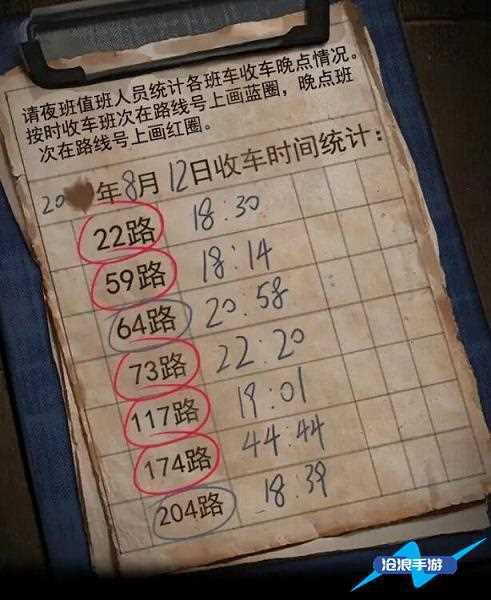 请夜班值班人员统计各班车收车晚点情况。
按时收车班次在路线号上画蓝圈，晚点班
次在路线号上画红圈。
20 年8月12日收车时间统计：
22路 18:30
59路 18:14
64路 20:58
73路 22:20
117路 19:01
174路 44:44
204路 18:39
沧浪手游